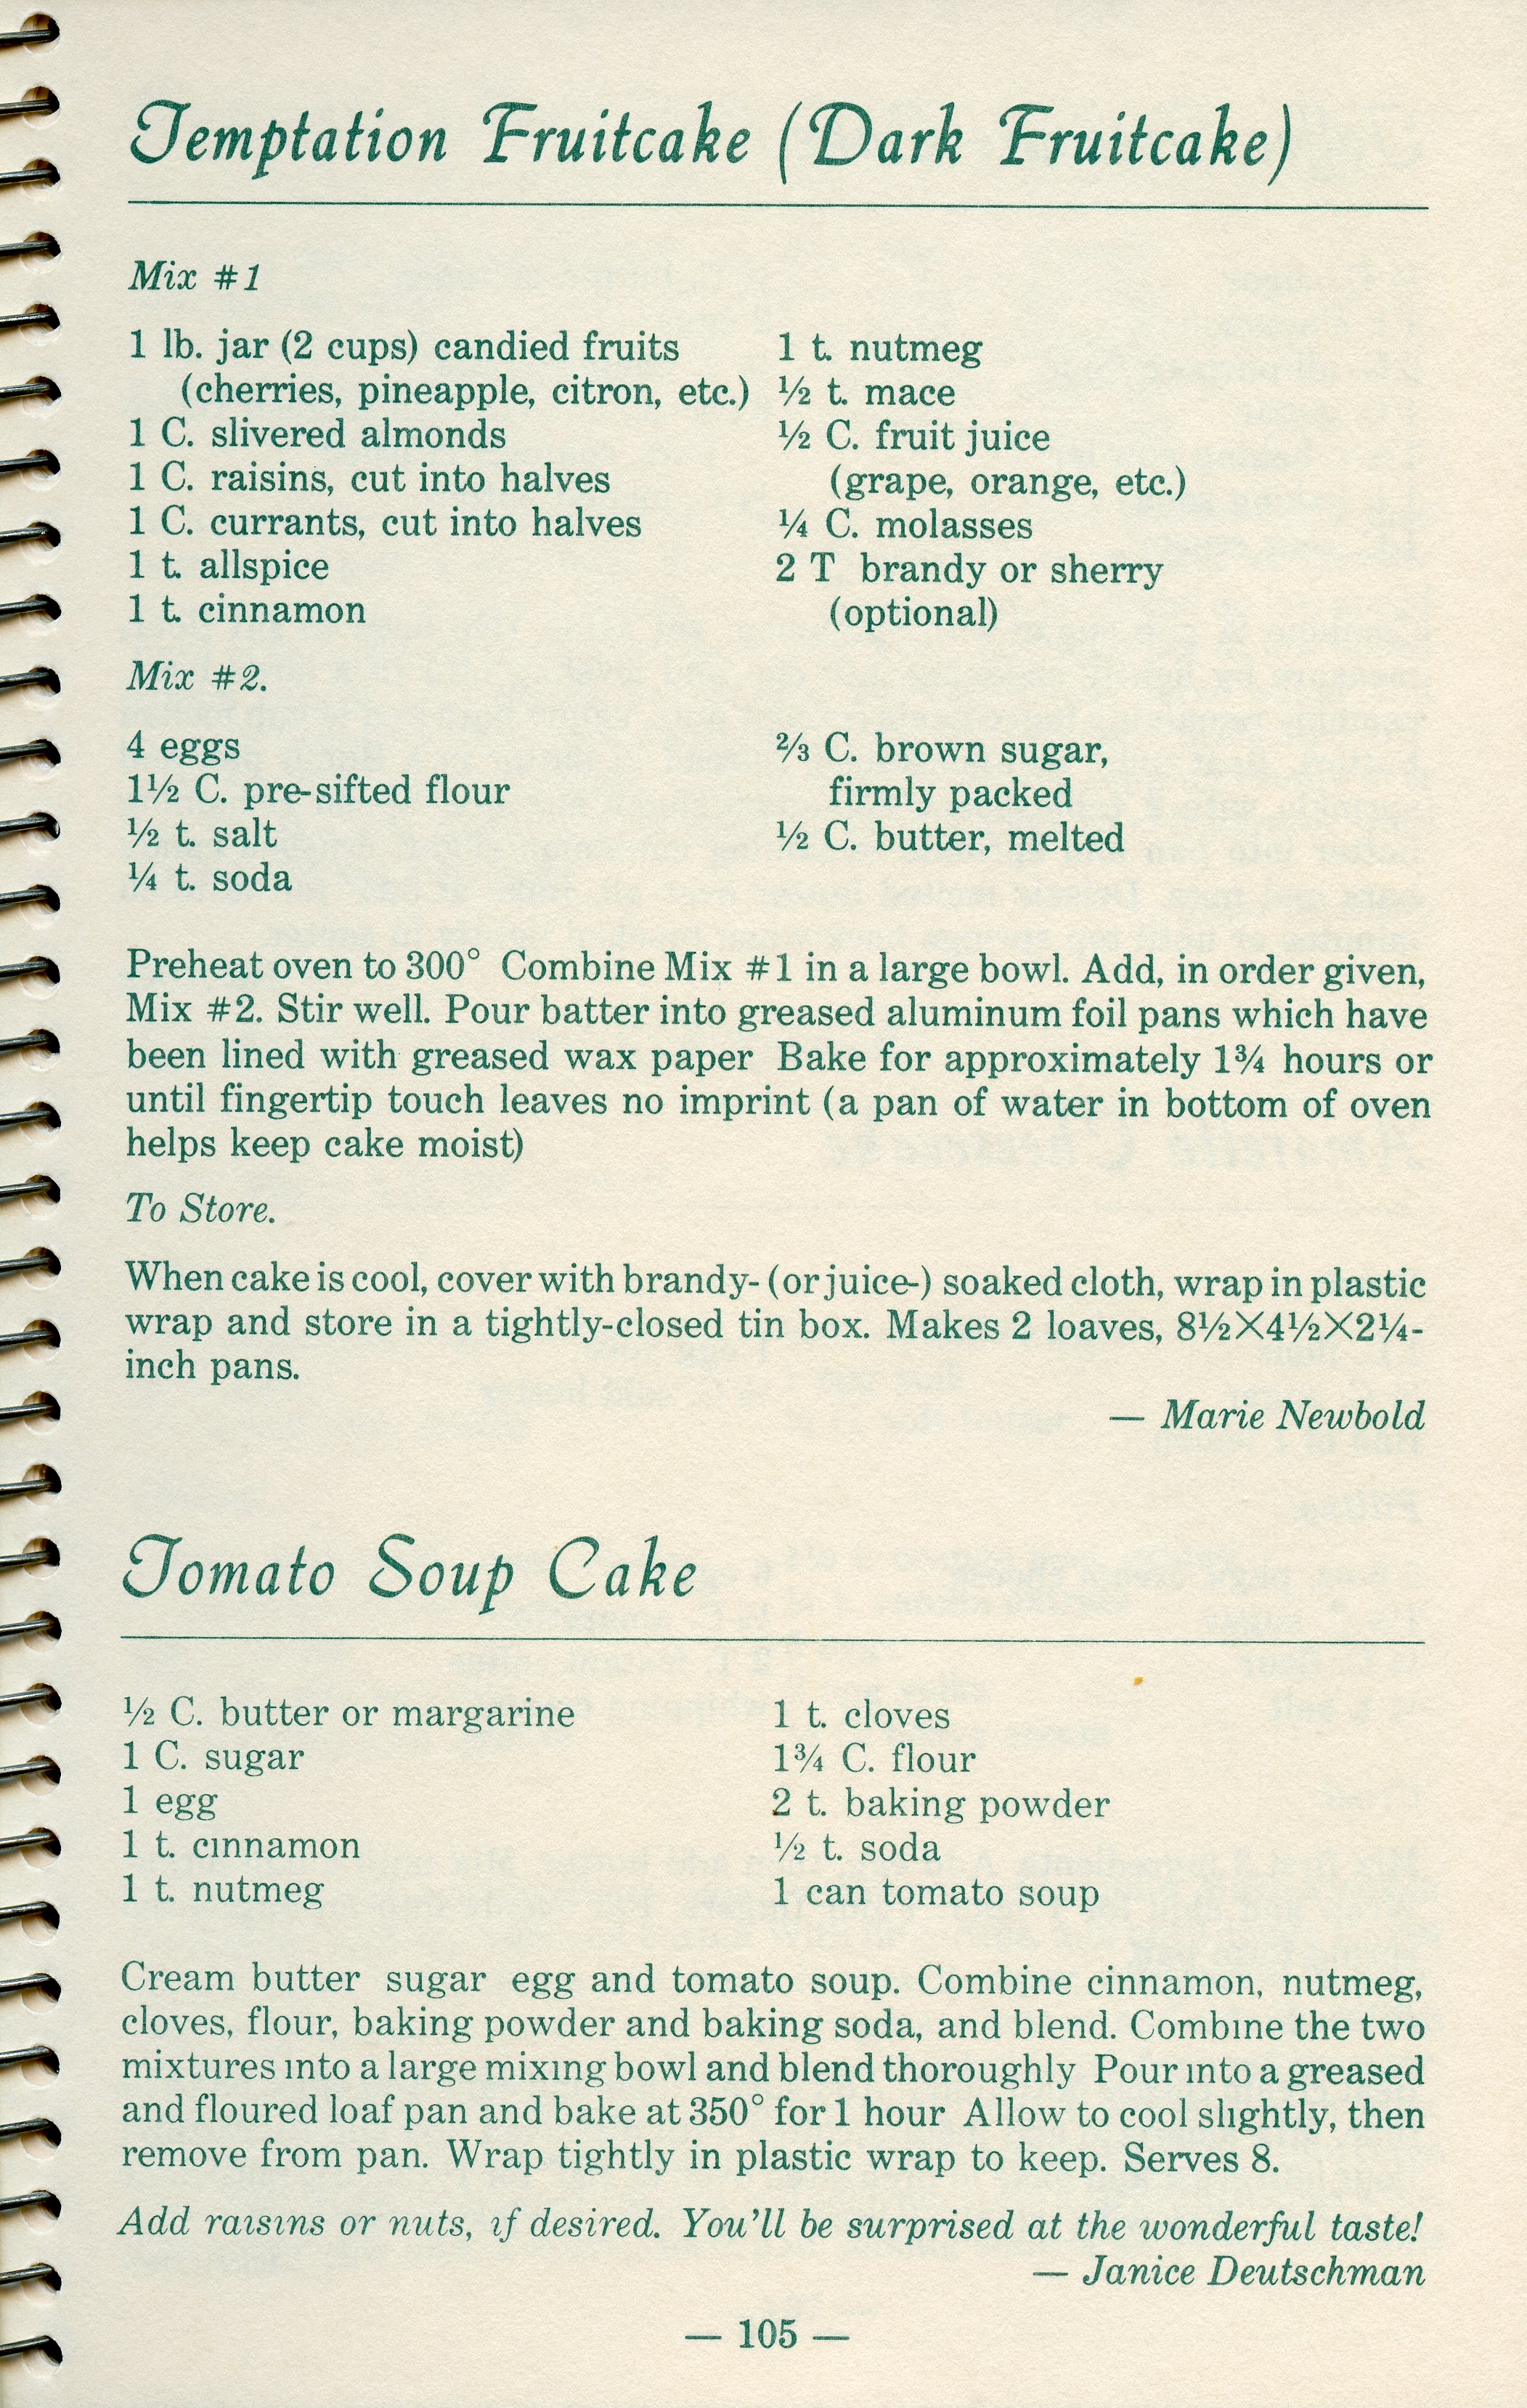 Temptation Fruitcake (Dark Fruitcake)
Mix #1
1 lb. jar (2 cups) candied fruits
(cherries, pineapple, citron, etc.)
1 C. slivered almonds
1 C. raisins, cut into halves
1 C. currants, cut into halves
1 t. allspice
1 t. cinnamon
1 t. nutmeg
½ t. mace
½ C. fruit juice
(grape, orange, etc.)
¼ C. molasses
2 T brandy or sherry
(optional)
Mix #2.
4 eggs
1½ C. pre-sifted flour
½ t. salt
¼ t. soda
⅔ C. brown sugar,
firmly packed
½ C. butter, melted
Preheat oven to 300° Combine Mix #1 in a large bowl. Add, in order given,
Mix #2. Stir well. Pour batter into greased aluminum foil pans which have
been lined with greased wax paper Bake for approximately 1¾ hours or
until fingertip touch leaves no imprint (a pan of water in bottom of oven
helps keep cake moist)
To Store.
When cake is cool, cover with brandy- (or juice-) soaked cloth, wrap in plastic
wrap and store in a tightly-closed tin box. Makes 2 loaves, 8½×4½×2¼-
inch pans.
— Marie Newbold
Tomato Soup Cake
½ C. butter or margarine
1 C. sugar
1 egg
1 t. cinnamon
1 t. nutmeg
1 t. cloves
1¾ C. flour
2 t. baking powder
½ t. soda
1 can tomato soup
Cream butter sugar egg and tomato soup. Combine cinnamon, nutmeg,
cloves, flour, baking powder and baking soda, and blend. Combine the two
mixtures into a large mixing bowl and blend thoroughly Pour into a greased
and floured loaf pan and bake at 350° for 1 hour Allow to cool slightly, then
remove from pan. Wrap tightly in plastic wrap to keep. Serves 8.
Add raisins or nuts, if desired. You'll be surprised at the wonderful taste!
— Janice Deutschman
— 105 —